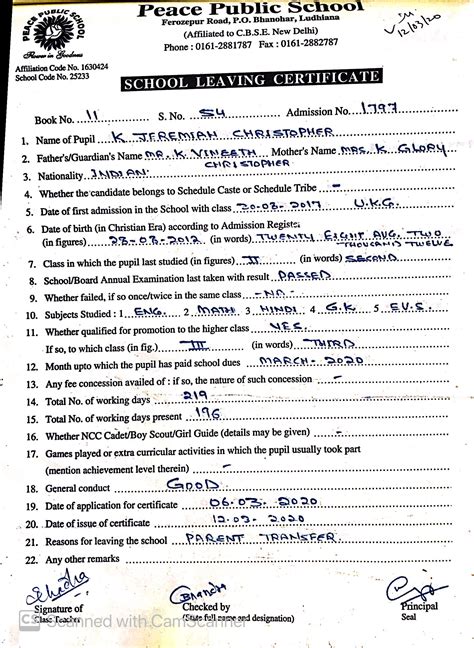 Peace Public School
Ferozepur Road, P.O. Bhanohar, Ludhiana
(Affiliated to C.B.S.E. New Delhi)
Phone : 0161-2881787 Fax : 0161-2882787
12/03/20
PEACE PUBLIC SCHOOL
Power in Goodness
Affiliation Code No. 1630424
School Code No. 25233
SCHOOL LEAVING CERTIFICATE
Book No. 11 S. No. 54 Admission No. 1797
1. Name of Pupil K JEREMIAH CHRISTOPHER
2. Father's/Guardian's Name MR. K VINEETH CHRISTOPHER Mother's Name MRS. K GLORY
3. Nationality INDIAN
4. Whether the candidate belongs to Schedule Caste or Schedule Tribe -
5. Date of first admission in the School with class 20-03-2017 U.K.G.
6. Date of birth (in Christian Era) according to Admission Register
(in figures) 28-08-2012 (in words) TWENTY EIGHT AUG. TWO THOUSAND TWELVE
7. Class in which the pupil last studied (in figures) II (in words) SECOND
8. School/Board Annual Examination last taken with result PASSED
9. Whether failed, if so once/twice in the same class -NA-
10. Subjects Studied : 1 ENG. 2 MATH 3 HINDI 4 G.K 5 EV.S.
11. Whether qualified for promotion to the higher class YES.
If so, to which class (in fig.) III (in words) THIRD
12. Month upto which the pupil has paid school dues MARCH-2020
13. Any fee concession availed of : if so, the nature of such concession -
14. Total No. of working days 219
15. Total No. of working days present 196
16. Whether NCC Cadet/Boy Scout/Girl Guide (details may be given) -
17. Games played or extra curricular activities in which the pupil usually took part
(mention achievement level therein) -
18. General conduct GOOD
19. Date of application for certificate 06-03-2020
20. Date of issue of certificate 12-03-2020
21. Reasons for leaving the school PARENT TRANSFER.
22. Any other remarks
Signature of Checked by Principal
Class Teacher (State full name and designation) Seal
CS Scanned with CamScanner